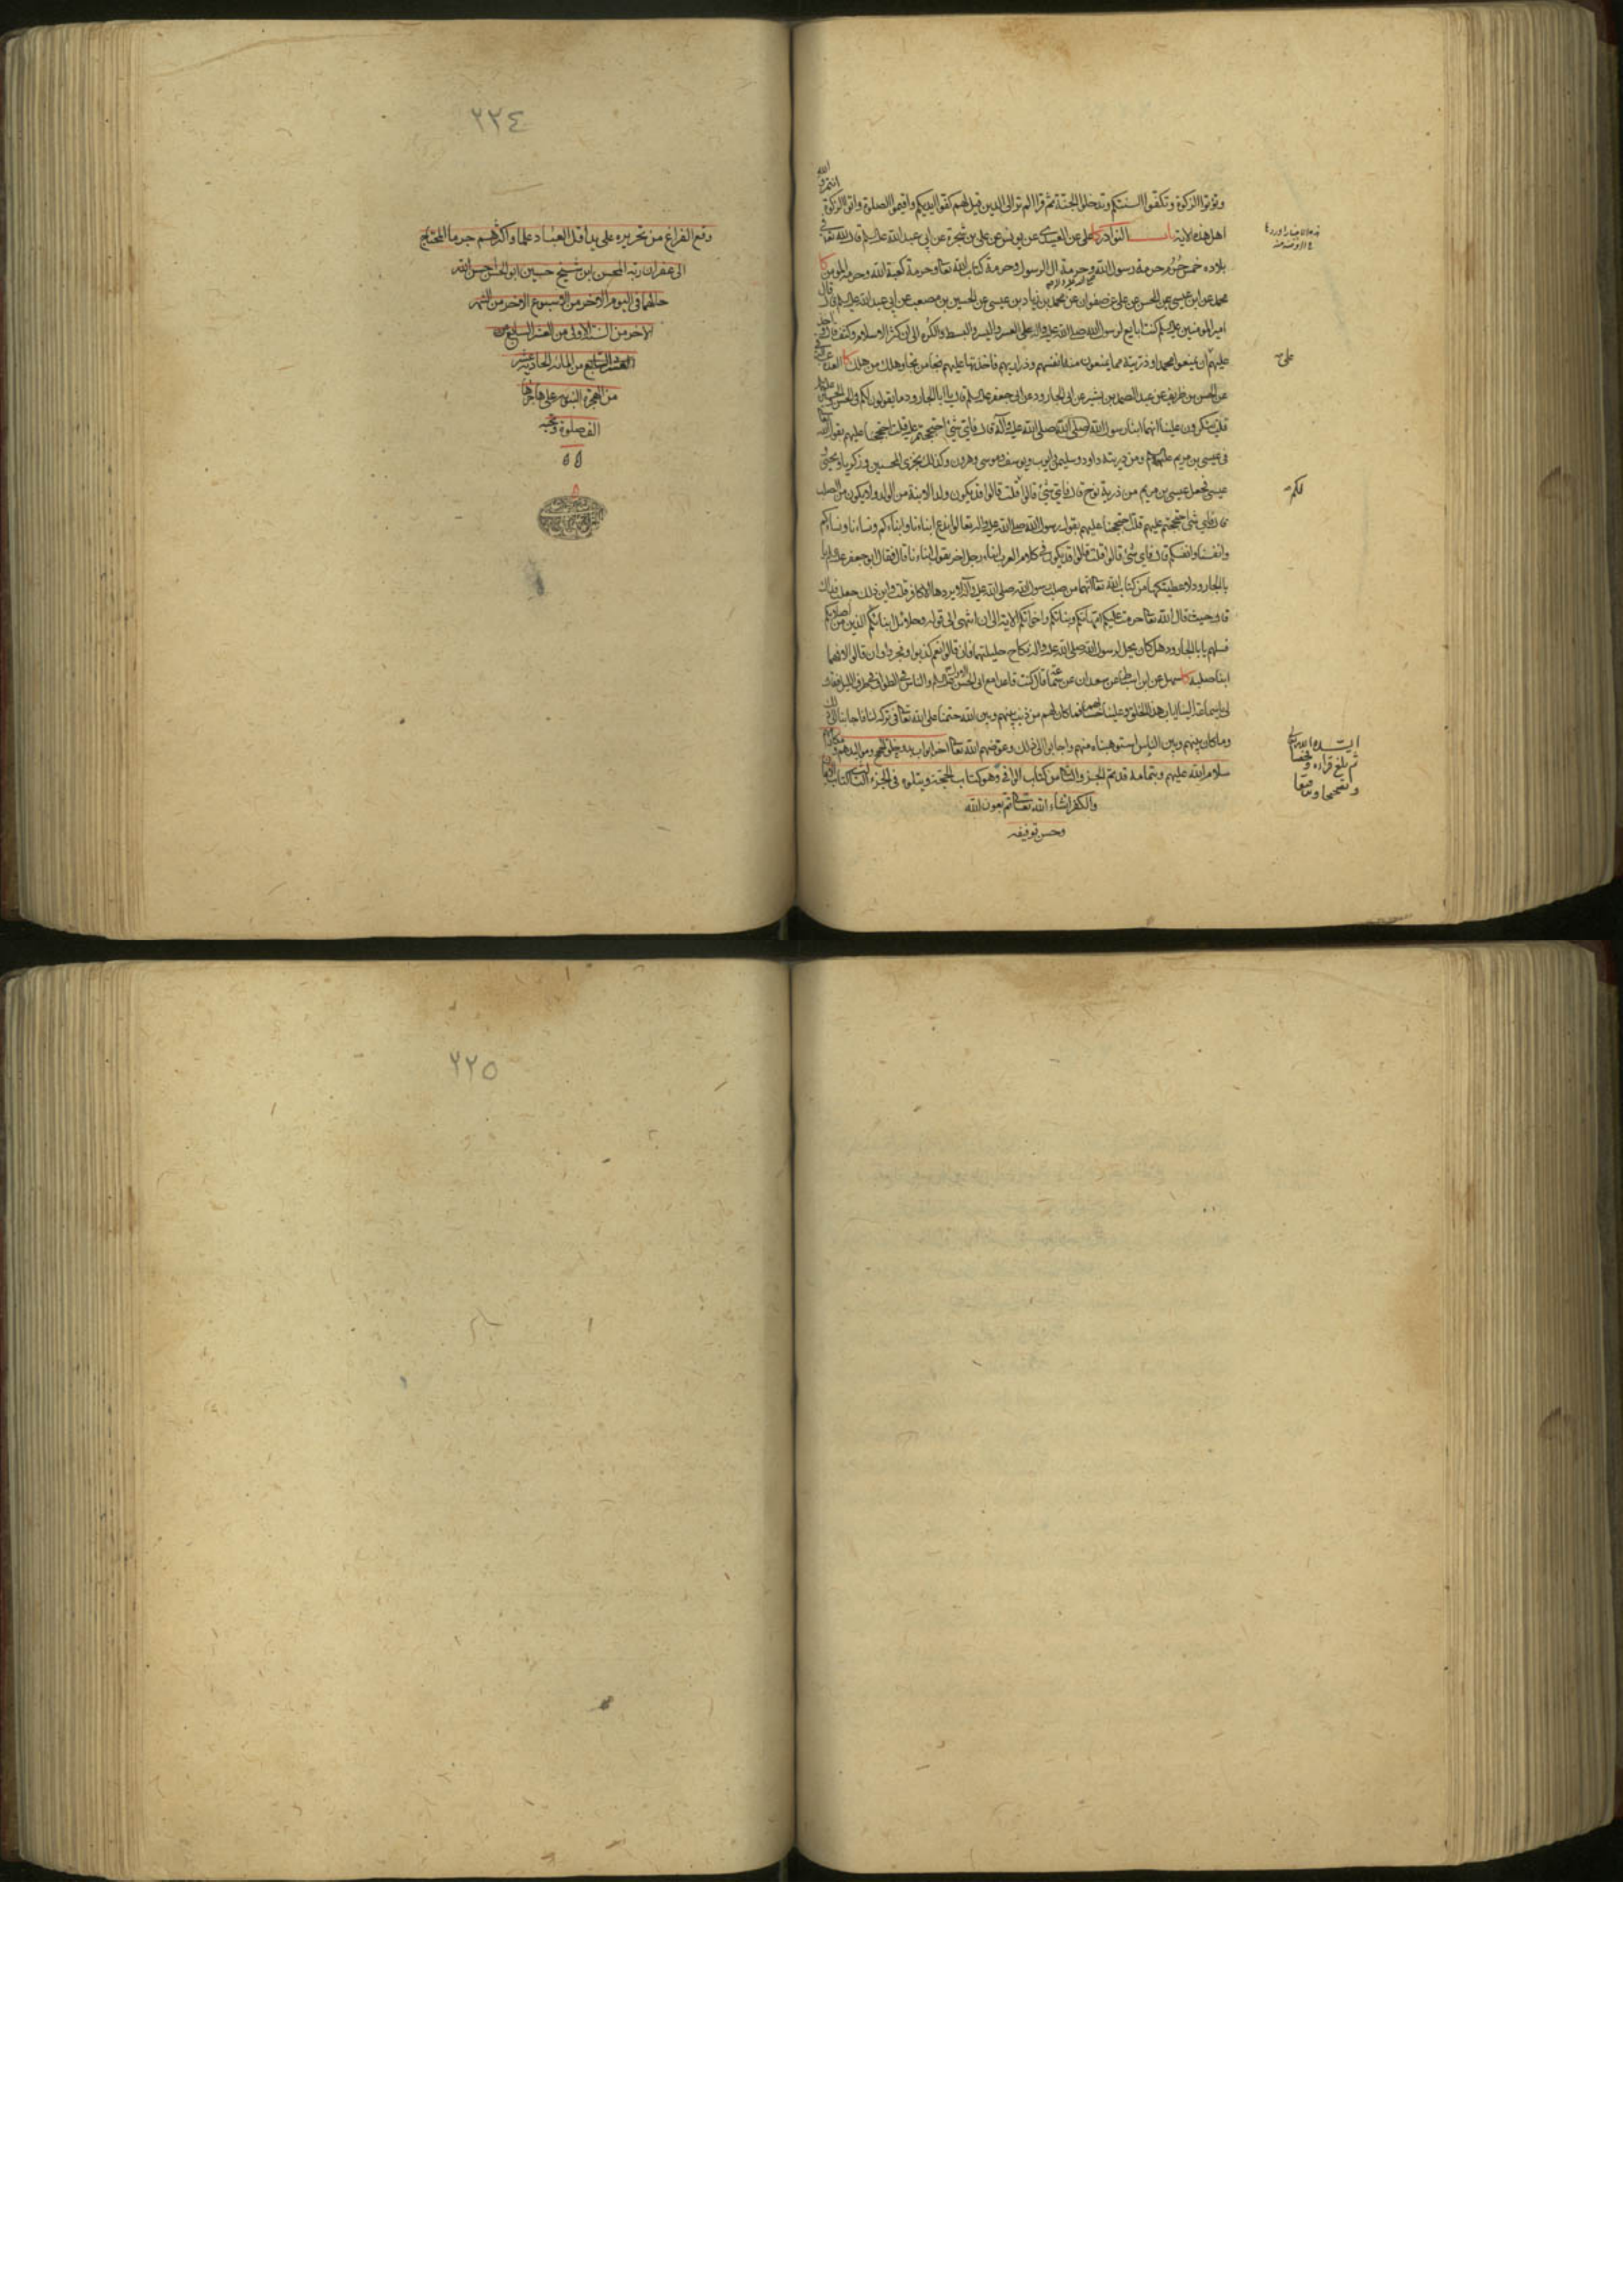 وتؤتوا الزكوة وتكفوا السنتكم وتدخلوا الجنة ثم قرا الم تر الى الذين قيل لهم كفوا ايديكم واقيموا الصلوة واتوا الزكوة
اهل هذه الاية باب النوادر كا على عن العبيدى عن يونس عن على بن شجرة عن ابي عبد الله قال لله تعا في
بلاده خمس حرم حرمة رسول الله وحرمة ال الرسول وحرمة كتاب الله تعا وحرمة كعبة الله وحرمة المومن كا
محمد عن ابن عيسى عن الحسن عن على عن صفوان عن محمد بن زياد بن عيسى عن الحسين بن مصعب عن ابي عبد الله قال قال
امير المومنين كنت ابايع لرسول الله صلى الله عليه واله على العسر واليسر والبسط والكره الى ان كثر الاسلام وكثف قال
عليهم ان يمنعوا محمدا وذريته مما يمنعون منه انفسهم وذراريهم فاخذتها عليهم نجا من نجا وهلك من هلك كا العدة
عن الحسن بن ظريف عن عبد الصمد بن بشير عن ابى الجارود عن ابى جعفر قال يا ابا الجارود ما يقولون لكم فى الحسن والحسين
قلت ينكرون علينا انهما ابنا رسول الله صلى الله عليه وآله قال فاي شئ احتججتم عليهم قلت احتججنا عليهم بقول الله
فى عيسى بن مريم ومن ذريته داود وسليمن وايوب ويوسف وموسى وهرون وكذلك نجزى المحسنين وزكريا ويحيى
عيسى فجعل عيسى بن مريم من ذرية نوح قال فاي شئ قالوا قلت قالوا قد يكون ولد الابنة من الولد ولا يكون من الصلب
قال فاي شئ احتججتم عليهم قلت احتججنا عليهم بقول رسول الله تعالوا ندع ابناءنا وابناءكم ونساءنا ونساءكم
وانفسنا وانفسكم قال فاي شئ قالوا قلت قالوا قد يكون في كلام العرب ابناء رجل اخر يقول ابناءنا قال فقال ابو جعفر يا
با الجارود لاعطينكها من كتاب الله تعا انهما من صلب رسول الله صلى الله عليه وآله لا يردها الا كافر قلت واين ذلك جعلت فداك
قال حيث قال الله تعا حرمت عليكم امهاتكم وبناتكم واخواتكم الاية الى ان انتهى الى قوله وحلائل ابنائكم الذين من اصلابكم
فسلهم يا با الجارود هل كان يحل لرسول الله صلى الله عليه واله نكاح حليلتهما فان قالوا نعم كذبوا وفجروا وان قالوا لا فهما
ابناه لصلبه كا سهل عن ابن سنان عن سعدان عن سماعة قال كنت قاعدا مع ابى الحسن الاول والناس في الطواف في جوف الليل فقال
لى يا سماعة الينا اياب هذا الخلق وعلينا حسابهم فما كان لهم من ذنب بينهم وبين الله حتمنا على الله تعا في تركه لنا فاجابنا الى ذلك
وما كان بينهم وبين الناس استوهبناه منهم واجابوا الى ذلك وعوضهم الله تعا اخر ابواب بدو خلق الحجج ومواليدهم ومكارمهم
سلام الله عليهم وبتمامه قد تم الجزو الثانى من كتاب الوافى وهو كتاب الحجة ويتلوه فى الجزء الثالث كتاب الايمان
والكفر انشاء الله تعا تم بعون الله
وحسن توفيقه
على
لكم
ايده الله
ثم بلغ قراءة
٢٢٤
وقع الفراغ من تحريره على يد اقل العباد علما واكثرهم جرما المحتاج
الى غفران ربه المحسن ابن شيخ حسين ابو الحسن احسن الله
حالهما فى اليوم الاخر من الاسبوع الاخر من الشهر
الاخر من السنة الاولى من العشر السابع من
من المائة الحادية عشر
من الهجرة النبويه على هاجرها
الف صلوة وتحية
٢٢٥